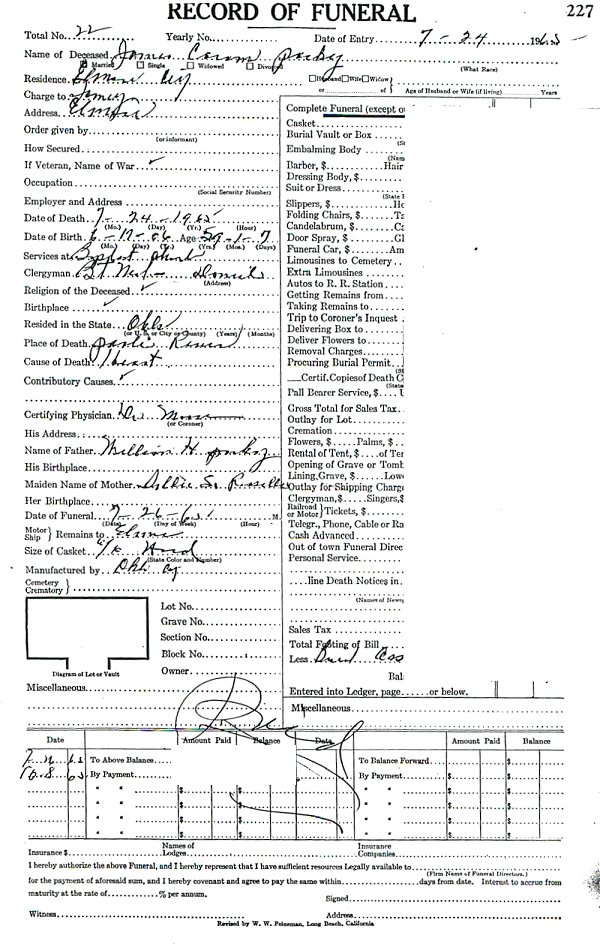 RECORD OF FUNERAL 227
Total No. 22 Yearly No. Date of Entry 7-24 1965
Name of Deceased James
Married Single Widowed Divorced (What Race)
Residence Husband Wife Widow
or of Age of Husband or Wife (if living) Years
Charge to
Address
Order given by
(or informant)
How Secured
If Veteran, Name of War
Occupation
(Social Security Number)
Employer and Address
Date of Death 7-24-1965
(Mo.) (Day) (Yr.) (Hour)
Date of Birth 6-17-06 Age 59-1-7
(Mo.) (Day) (Yr.) (Yrs.) (Mos.) (Days)
Services at Baptist Church
Clergyman
(Address)
Religion of the Deceased
Birthplace
Resided in the State Okla
(or U. S. or City or County) (Years) (Months)
Place of Death
Cause of Death Heart
Contributory Causes
Certifying Physician Dr.
(or Coroner)
His Address
Name of Father William H.
His Birthplace
Maiden Name of Mother
Her Birthplace
Date of Funeral 7-26-65 M
(Date) (Day of Week) (Hour)
Motor
Ship } Remains to Elmer
Size of Casket
(State Color and Number)
Manufactured by
Cemetery
Crematory }
Lot No.
Grave No.
Section No.
Block No.
Owner
Diagram of Lot or Vault
Miscellaneous
Complete Funeral (except o
Casket
Burial Vault or Box
(St
Embalming Body
(Nam
Barber, $ Hair
Dressing Body, $
Suit or Dress
(State
Slippers, $ Ho
Folding Chairs, $ Ta
Candelabrum, $ Ca
Door Spray, $ Gl
Funeral Car, $ Am
Limousines to Cemetery
Extra Limousines
Autos to R. R. Station
Getting Remains from
Taking Remains to
Trip to Coroner's Inquest
Delivering Box to
Deliver Flowers to
Removal Charges
Procuring Burial Permit
(St
Certif.Copies of Death C
(State
Pall Bearer Service, $
Gross Total for Sales Tax
Outlay for Lot
Cremation
Flowers, $ Palms, $
Rental of Tent, $ of Te
Opening of Grave or Tomb
Lining, Grave, $ Low
Outlay for Shipping Charg
Clergyman, $ Singers, $
Railroad
or Motor } Tickets, $
Telegr., Phone, Cable or Ra
Cash Advanced
Out of town Funeral Direc
Personal Service
line Death Notices in
(Names of News
Sales Tax
Total Footing of Bill
Less
Bal
Entered into Ledger, page or below.
Miscellaneous
Date Amount Paid Balance Date Amount Paid Balance
To Above Balance To Balance Forward
10-8-65 By Payment By Payment $ $
" " $ $ " " $ $
" " $ $ " " $ $
" " $ $ " " $ $
" " $ $ " " $ $
Insurance $ Names of Lodges Insurance Companies
I hereby authorize the above Funeral, and I hereby represent that I have sufficient resources Legally available to
(Firm Name of Funeral Directors.)
for the payment of aforesaid sum, and I hereby covenant and agree to pay the same within days from date. Interest to accrue from
maturity at the rate of % per annum. Signed
Witness Address
Revised by W. W. Feineman, Long Beach, California